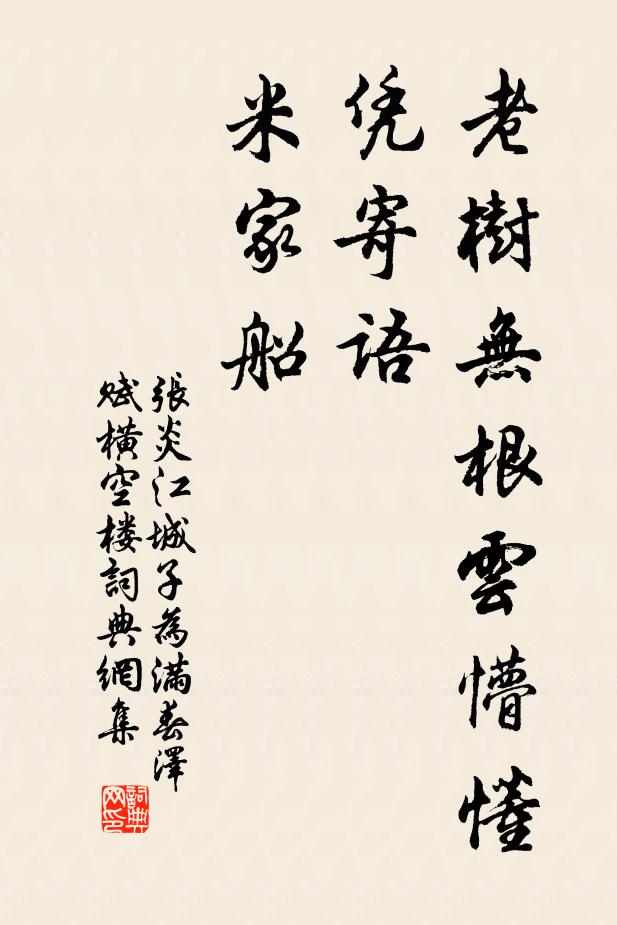 老樹無根雲懵懂
凭寄語
米家船
張炎江城子為滿春澤
賦橫空楼詞典網集
詞典
网印